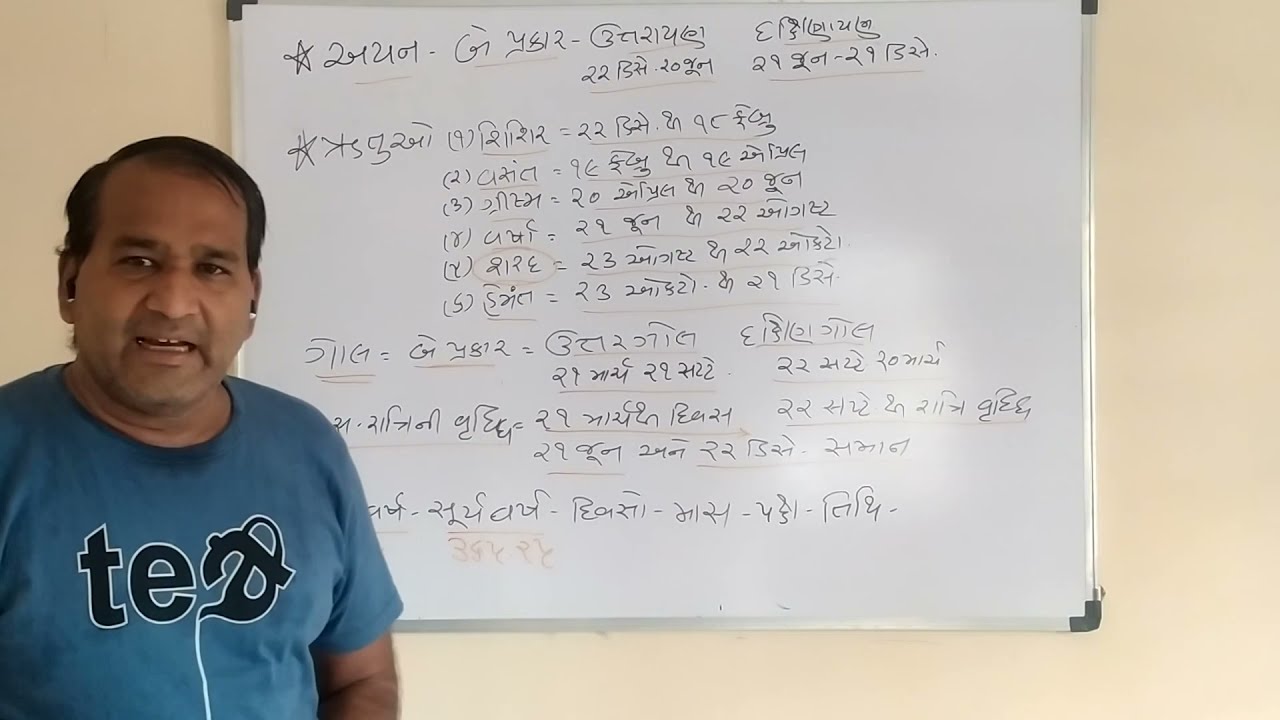 ★ અયન - બે પ્રકાર - ઉત્તરાયણ દક્ષિણાયણ
૨૨ ડિસે. ૨૦ જૂન ૨૧ જૂન - ૨૧ ડિસે.
★ ઋતુઓ (૧) શિશિર = ૨૨ ડિસે. થી ૧૮ ફેબ્રુ
(૨) વસંત = ૧૯ ફેબ્રુ થી ૧૯ એપ્રિલ
(૩) ગ્રીષ્મ = ૨૦ એપ્રિલ થી ૨૦ જૂન
(૪) વર્ષા = ૨૧ જૂન થી ૨૨ ઓગષ્ટ
(૫) શરદ = ૨૩ ઓગષ્ટ થી ૨૨ ઓકટો.
(૬) હેમંત = ૨૩ ઓકટો. થી ૨૧ ડિસે.
ગોલ = બે પ્રકાર = ઉત્તરગોલ દક્ષિણગોલ
૨૧ માર્ચ ૨૧ સપ્ટે. ૨૨ સપ્ટે ૨૦ માર્ચ
સ. રાત્રિની વૃધ્ધિ = ૨૧ માર્ચથી દિવસ ૨૨ સપ્ટે થી રાત્રિ વૃધ્ધિ
૨૧ જૂન અને ૨૨ ડિસે. સમાન
વર્ષ - સૂર્ય વર્ષ - દિવસો - માસ - પક્ષ - તિથિ -
૩૬૫ ૨૫
te